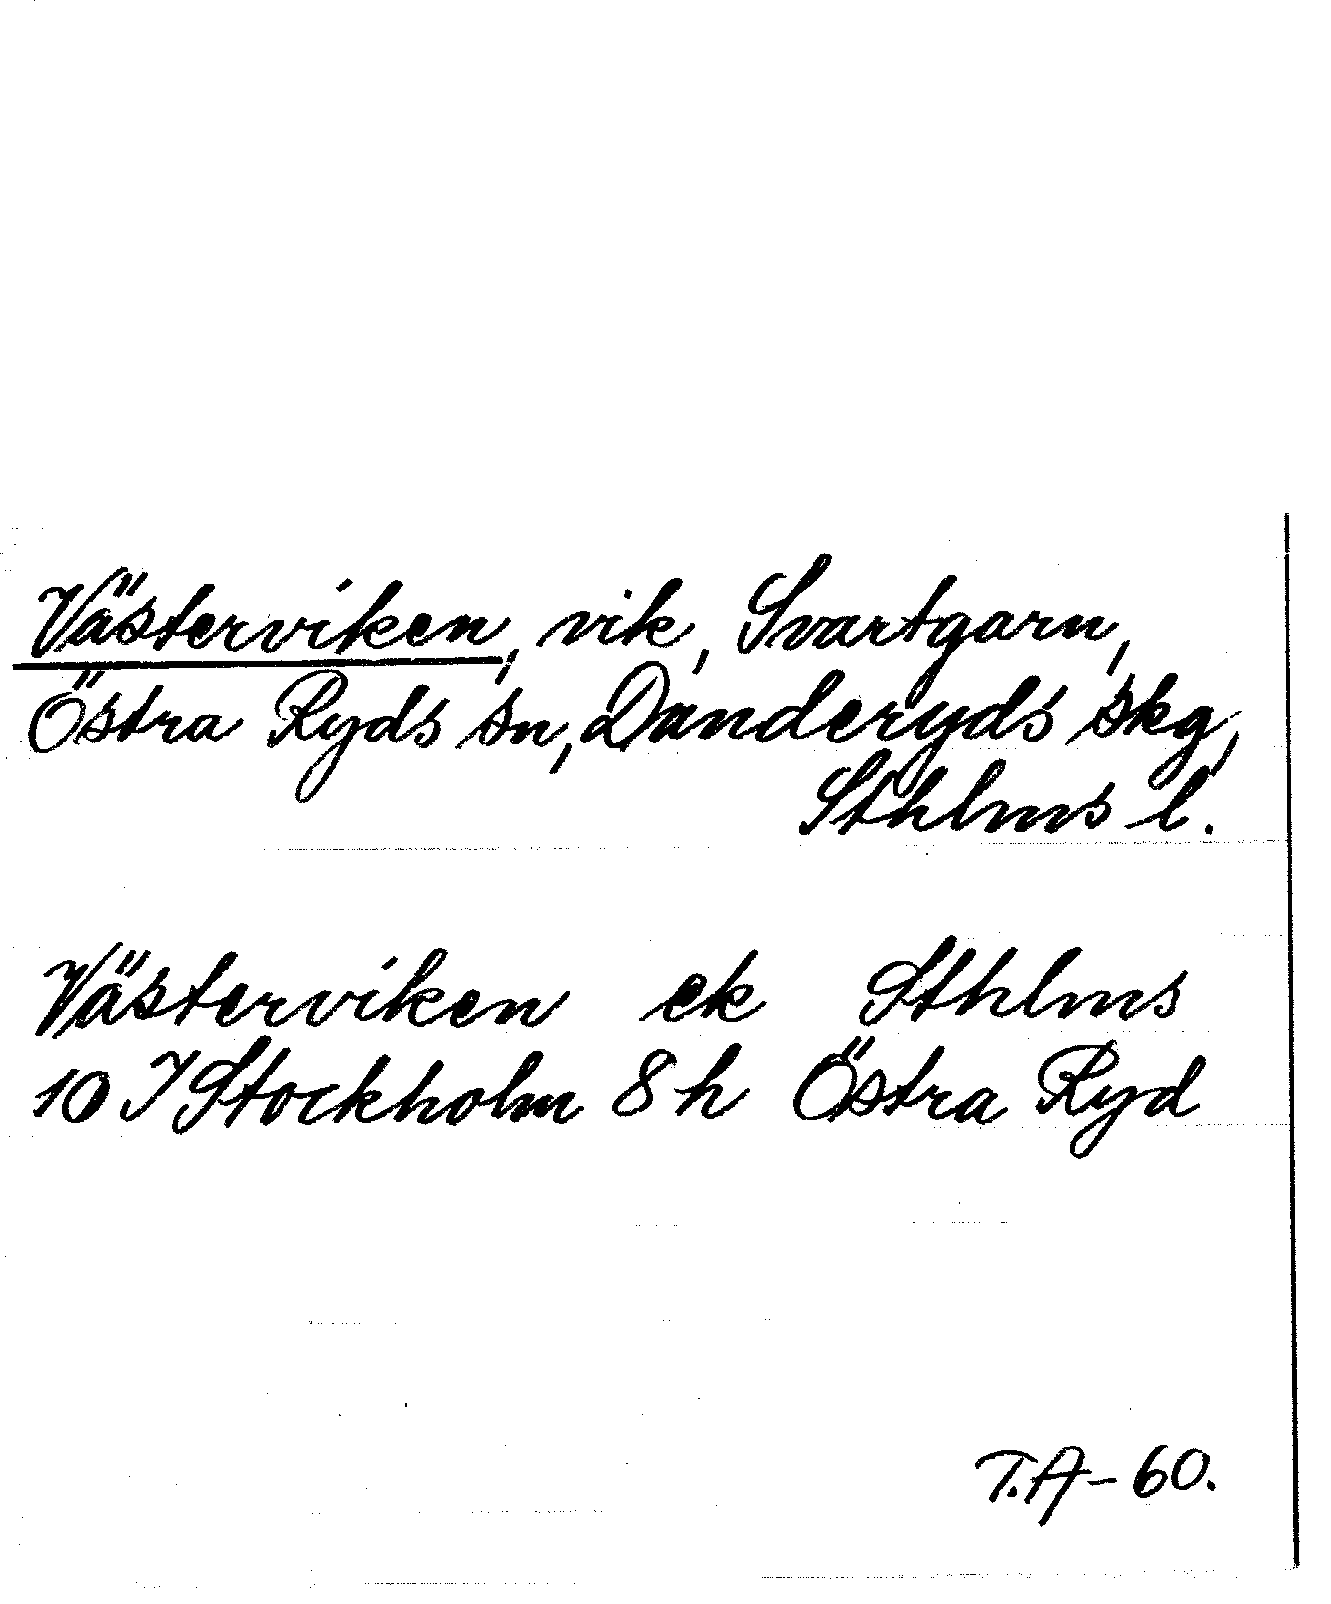 Västerviken, vik, Svartgarn,
Östra Ryds sn, Danderyds skg,
Sthlms l.
Västerviken ek Sthlms
10 I Stockholm 8 h Östra Ryd
T.A-60.